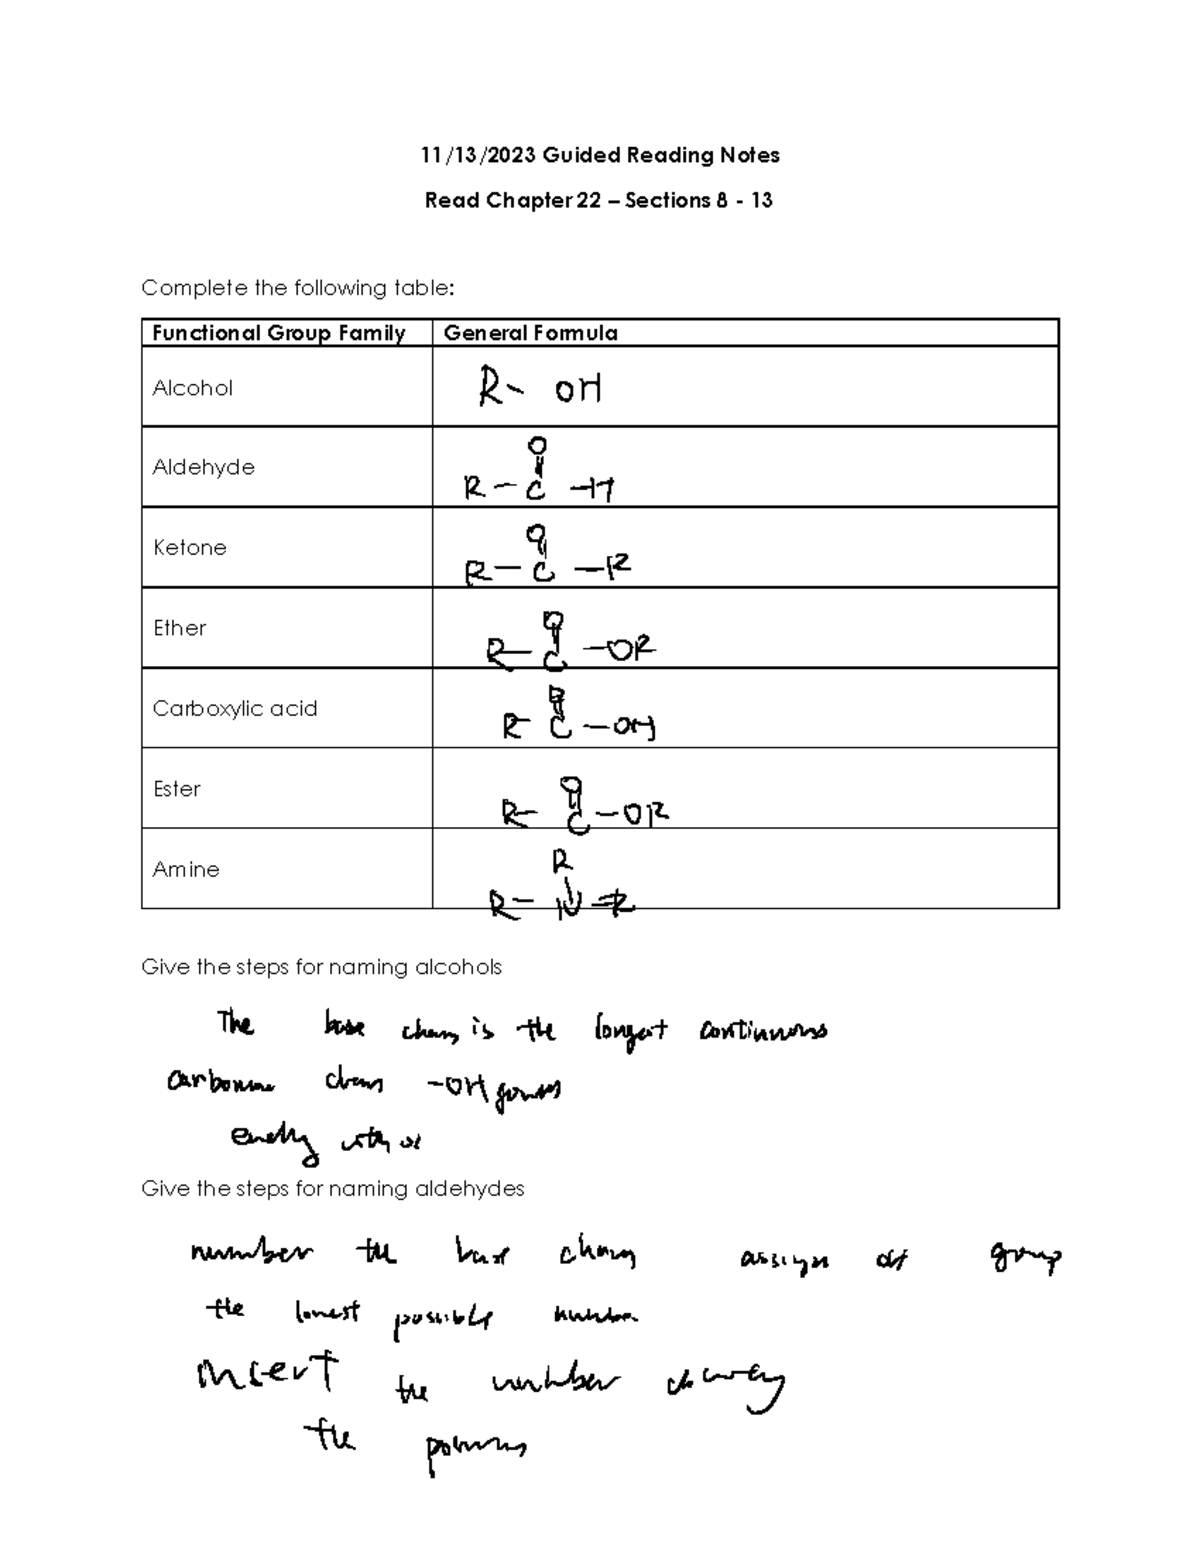 11/13/2023 Guided Reading Notes
Read Chapter 22 – Sections 8 - 13
Complete the following table:
Functional Group Family General Formula
Alcohol R- OH
O
Aldehyde R - C - H
O
Ketone R - C - R
O
Ether R - C - OR
O
Carboxylic acid R C - OH
O
Ester R - C - OR
R
Amine R - N - R
Give the steps for naming alcohols
The base chain is the longest continuous
chain -OH
with
Give the steps for naming aldehydes
number the base chain assign OH group
the lowest possible number
insert the number
the